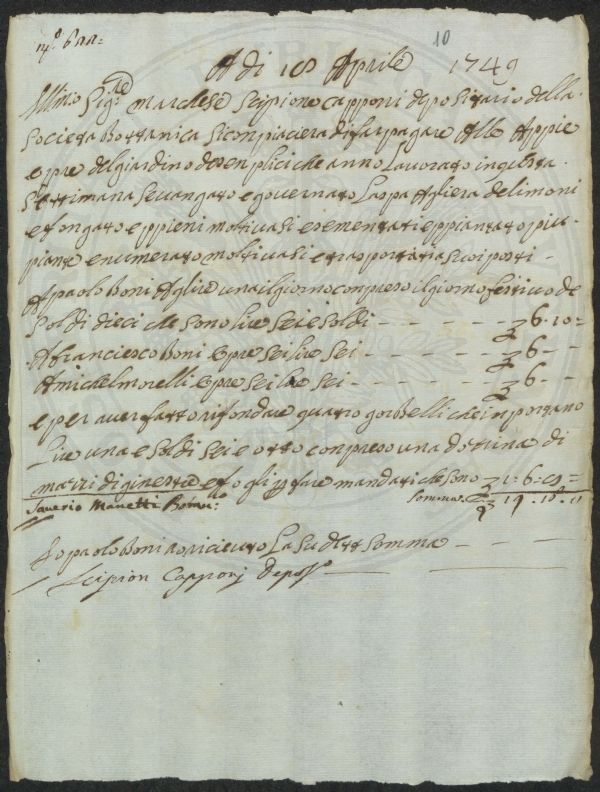 10
A di 18 Aprile 1749
Illmo Sigre Marchese Scipione Capponi depositario della
Società Bottanica Si conpiacera di far pagare Alle Appie
e pre del giardino de senplici che anno Lavorato in questa
Settimana Se vangato e governato La spa Agliera de limoni
e fongato e ppieni molti vasi e sementati e ppiantato piu
piante e numerato molti vasi e trasportati a suoi posti -
A paolo Boni A lire una il giorno conpreso il giorno festivo de
Soldi dieci che sono lire Sei e Soldi - - - - - 6.10=
A francesco Boni Eopre Sei lire Sei - - - - - 6 - -
A michel morelli Eopre Sei lire Sei - - - - - 6 - -
e per aver fatto rifondare quatro gorbelli che inportano
Lire una e Soldi Sei e otto conpreso una dozzina di
mazzi di ginestre e fogli p fare mandati che sono 1.6.8=
Saverio Manetti Somma
Io paolo Boni o ricieuto La Su detta Somma - - -
Scipion Capponj Depos.o